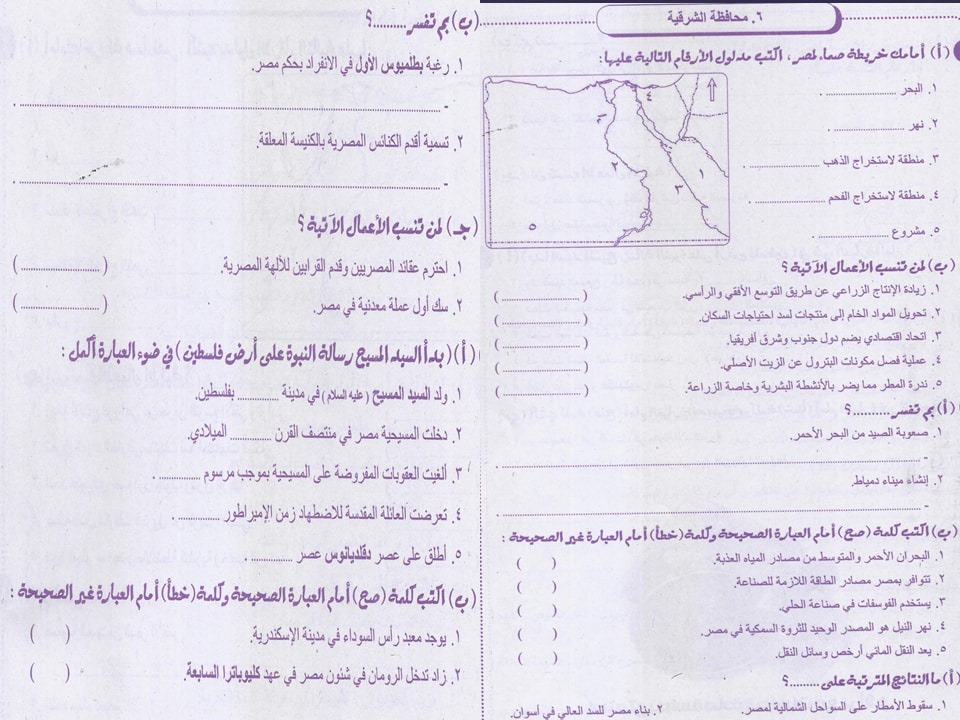 ٦. محافظة الشرقية
(أ) أمامك خريطة صماء لمصر، اكتب مدلول الأرقام التالية عليها:
١. البحر ............ .
٢. نهر ............ .
٣. منطقة لاستخراج الذهب ............ .
٤. منطقة لاستخراج الفحم ............ .
٥. مشروع ............ .
٤
٦
١
٢
٣
٥
(ب) لمن تنسب الأعمال الآتية؟
١. زيادة الإنتاج الزراعي عن طريق التوسع الأفقي والرأسي. (............)
٢. تحويل المواد الخام إلى منتجات لسد احتياجات السكان. (............)
٣. اتحاد اقتصادي يضم دول جنوب وشرق أفريقيا. (............)
٤. عملية فصل مكونات البترول عن الزيت الأصلي. (............)
٥. ندرة المطر مما يضر بالأنشطة البشرية وخاصة الزراعة. (............)
(أ) بم تفسر .........؟
١. صعوبة الصيد من البحر الأحمر.
- ............
٢. إنشاء ميناء دمياط.
- ............
(ب) اكتب كلمة (صح) أمام العبارة الصحيحة وكلمة (خطأ) أمام العبارة غير الصحيحة :
١. البحران الأحمر والمتوسط من مصادر المياه العذبة. ( )
٢. تتوافر بمصر مصادر الطاقة اللازمة للصناعة. ( )
٣. يستخدم الفوسفات في صناعة الحلي. ( )
٤. نهر النيل هو المصدر الوحيد للثروة السمكية في مصر. ( )
٥. يعد النقل المائي أرخص وسائل النقل. ( )
(أ) ما النتائج المترتبة على .........؟
١. سقوط الأمطار على السواحل الشمالية لمصر. ٢. بناء مصر للسد العالي في أسوان.
(ب) بم تفسر .........؟
١. رغبة بطلميوس الأول في الانفراد بحكم مصر.
- ............
٢. تسمية أقدم الكنائس المصرية بالكنيسة المعلقة.
- ............
(جـ) لمن تنسب الأعمال الآتية ؟
١. احترم عقائد المصريين وقدم القرابين للآلهة المصرية. (............)
٢. سك أول عملة معدنية في مصر. (............)
(أ) (بدأ السيد المسيح رسالة النبوة على أرض فلسطين) في ضوء العبارة أكمل :
١. ولد السيد المسيح (عليه السلام) في مدينة ............ بفلسطين.
٢. دخلت المسيحية مصر في منتصف القرن ............ الميلادي.
٣. ألغيت العقوبات المفروضة على المسيحية بموجب مرسوم ............ .
٤. تعرضت العائلة المقدسة للاضطهاد زمن الإمبراطور ............ .
٥. أطلق على عصر دقلديانوس عصر ............ .
(ب) اكتب كلمة (صح) أمام العبارة الصحيحة وكلمة (خطأ) أمام العبارة غير الصحيحة :
١. يوجد معبد رأس السوداء في مدينة الإسكندرية. ( )
٢. زاد تدخل الرومان في شئون مصر في عهد كليوباترا السابعة. ( )